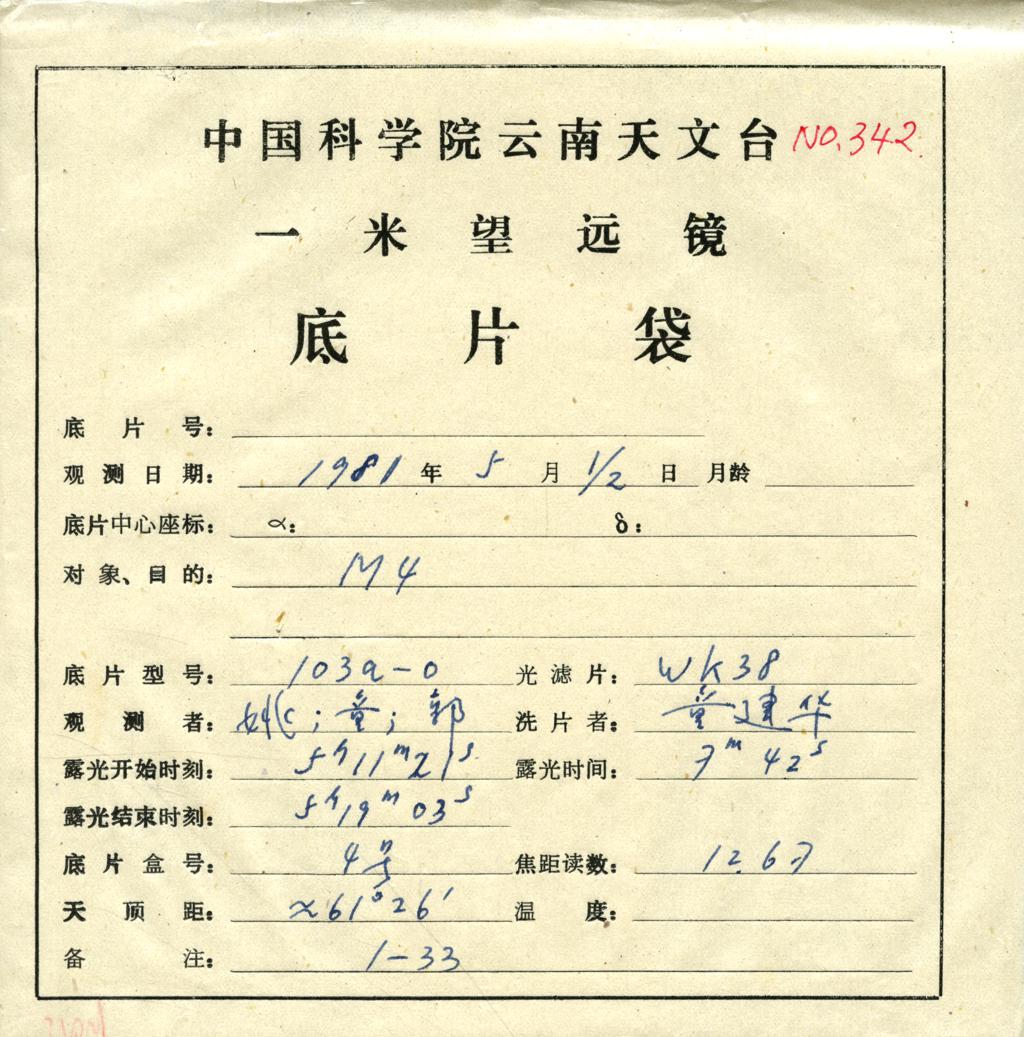 中国科学院云南天文台 NO.342.
一米望远镜
底片袋
底片号：
观测日期：1981年5月1/2日 月龄
底片中心座标：α： δ：
对象、目的：M4
底片型号：103a-O 光滤片：WK38
观测者：姚；童；郭 洗片者：童建华
露光开始时刻：5h11m21s 露光时间：7m42s
露光结束时刻：5h19m03s
底片盒号：4号 焦距读数：12.67
天顶距：≈61°26′ 温度：
备注：1-33